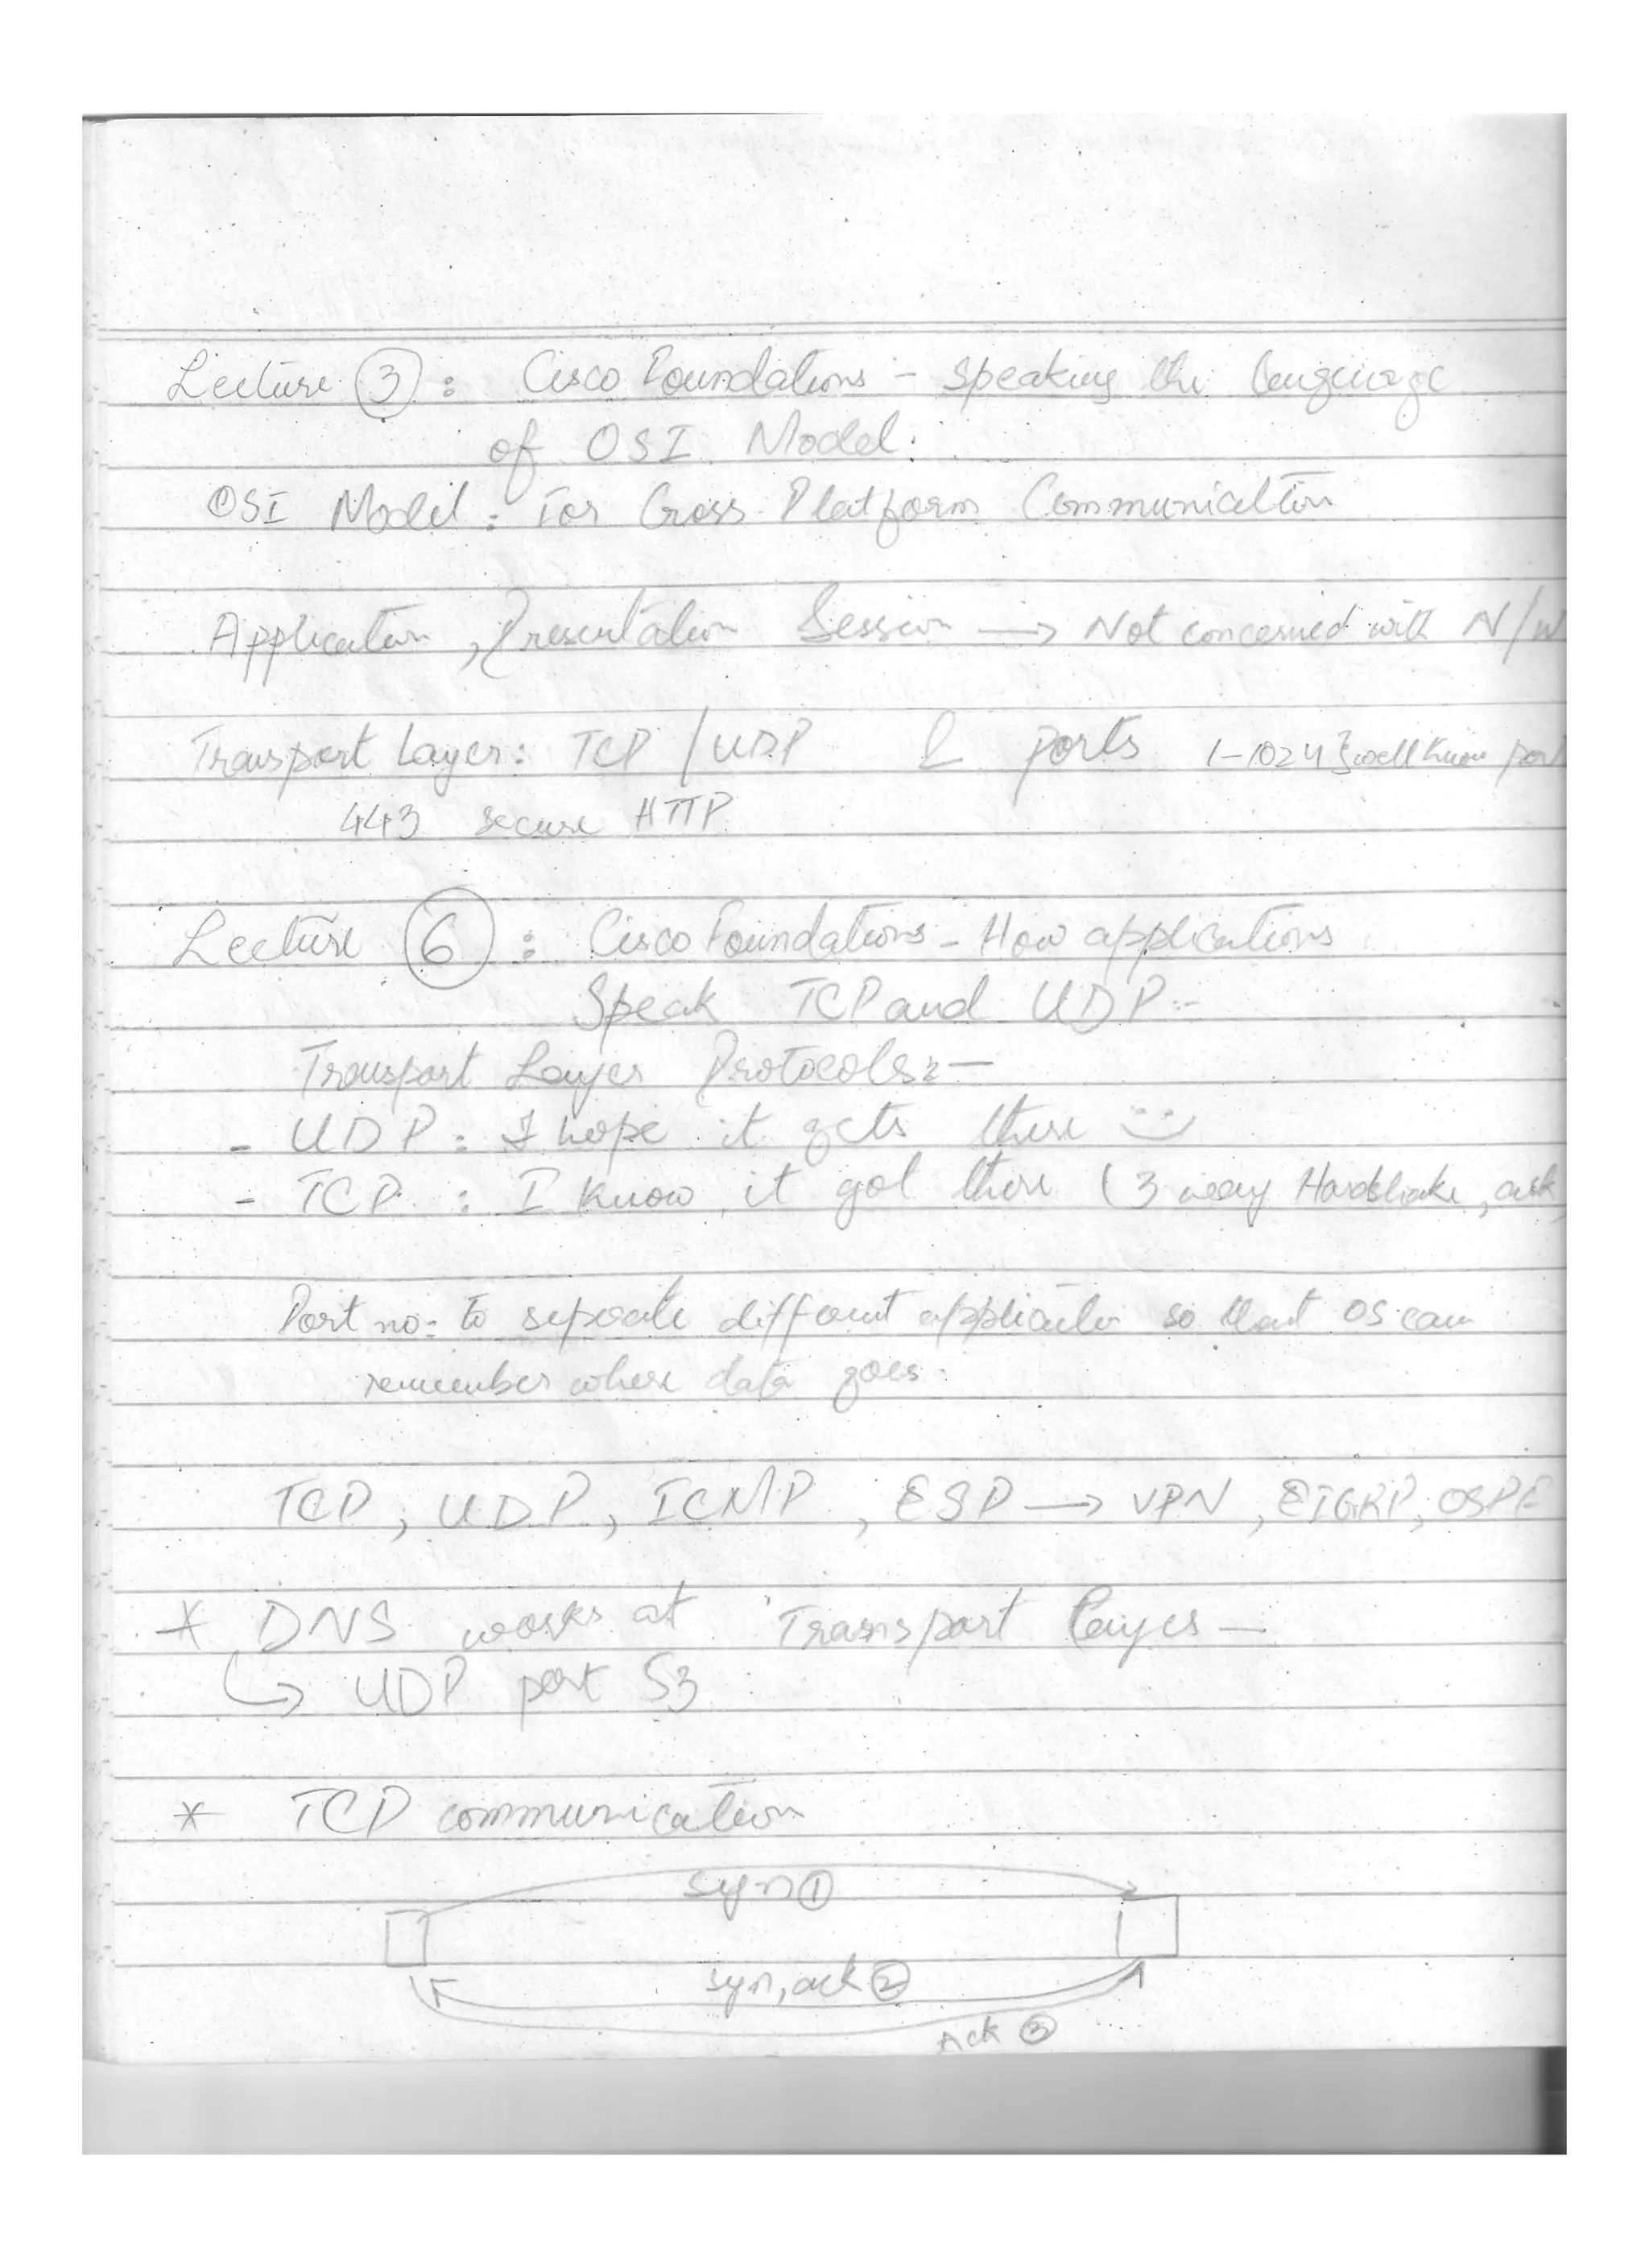 Lecture 3 : Cisco Foundations - Speaking the language
of OSI Model:
OSI Model: For Cross Platform Communication
Application, Presentation Session → Not concerned with N/W
Transport Layer: TCP / UDP & ports 1-1024 } well know port
443 secure HTTP
Lecture 6 : Cisco Foundations - How applications
Speak TCP and UDP:-
Transport Layer Protocols:-
- UDP : I hope it gets there :)
- TCP : I know it got there (3 way Handshake, ack
Port no: to seperate different application so that OS can
remember where data goes.
TCP, UDP, ICMP, ESP → VPN, EIGRP, OSPF
* DNS works at Transport layer -
↳ UDP port 53
* TCP communication
syn ①
syn, ack ②
Ack ③